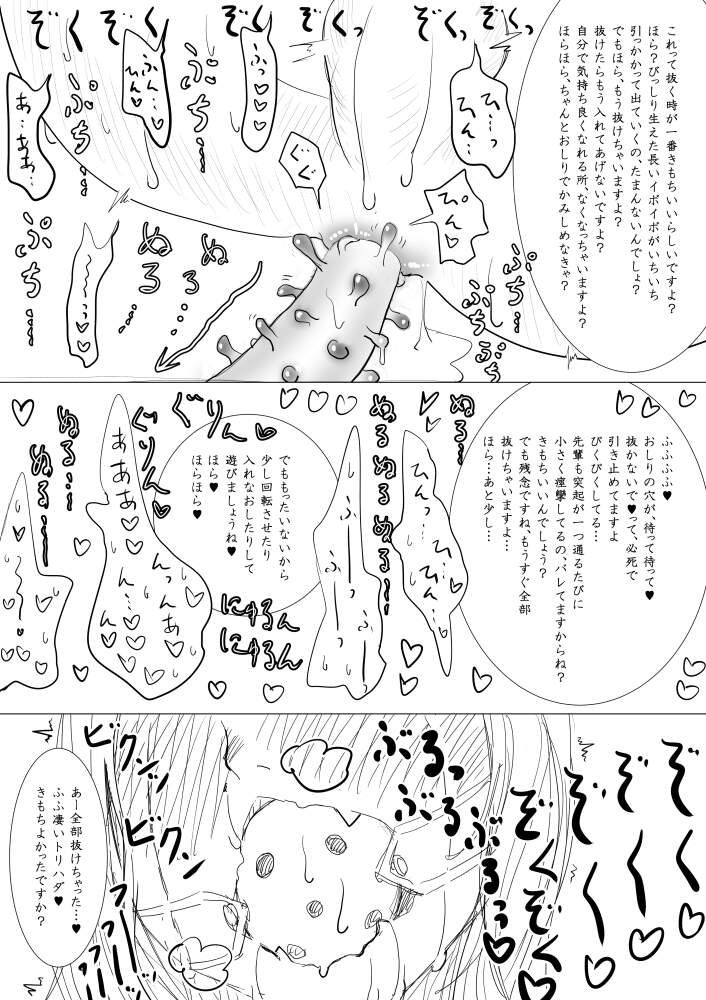 これって抜く時が一番きもちいいらしいですよ？
ほら？びっしり生えた長いイボイボがいちいち
引っかかって出ていくの、たまんないんでしょ？
でもほら、もう抜けちゃいますよ？
抜けたらもう入れてあげないですよ？
自分で気持ち良くなれる所、なくなっちゃいますよ？
ほらほら、ちゃんとおしりでかみしめなきゃ？
ぞくっ
ぞくっ
ぞくっ
ぞくっ
ひ…っ
ひん…
ふっ♡♡♡♡
ふん…
ひん♡
あ…ああ…
ぷち…
ぷち…
ぐぐ
ぴん♡
ぷち…
ぷちぷち
ぬる…
ぬる…
ぷち…
ふふふふ♥
おしりの穴が、待って待って♥
抜かないで♥って、必死で
引き止めてますよ
びくびくしてる…
先輩も突起が一つ通るたびに
小さく痙攣してるの、バレてますからね？
きもちいいんでしょう？
でも残念ですね、もうすぐ全部
抜けちゃいますよ…
ほら…あと少し…
ぬる…
ぬる…
ひんっ
ひ…ん…
ふーーっ
ふーっ
でももったいないから
少し回転させたり
入れなおしたりして
遊びましょうね♥
ほら♥
ほらほら♥
ぐりん
ぐりん♡
にゅるん
にゅるん
あああ♡♡
んっんあ
ん…
ぬる…
ぬる…
ぞく〜♡
ぞく〜♡
ぞく〜♡
ぶるっ
ぶるぶるっ♡
ビクンッ
ビクン
ふーっふーっ
あー全部抜けちゃった…♥
ふふ凄いトリハダ♥
きもちよかったですか？